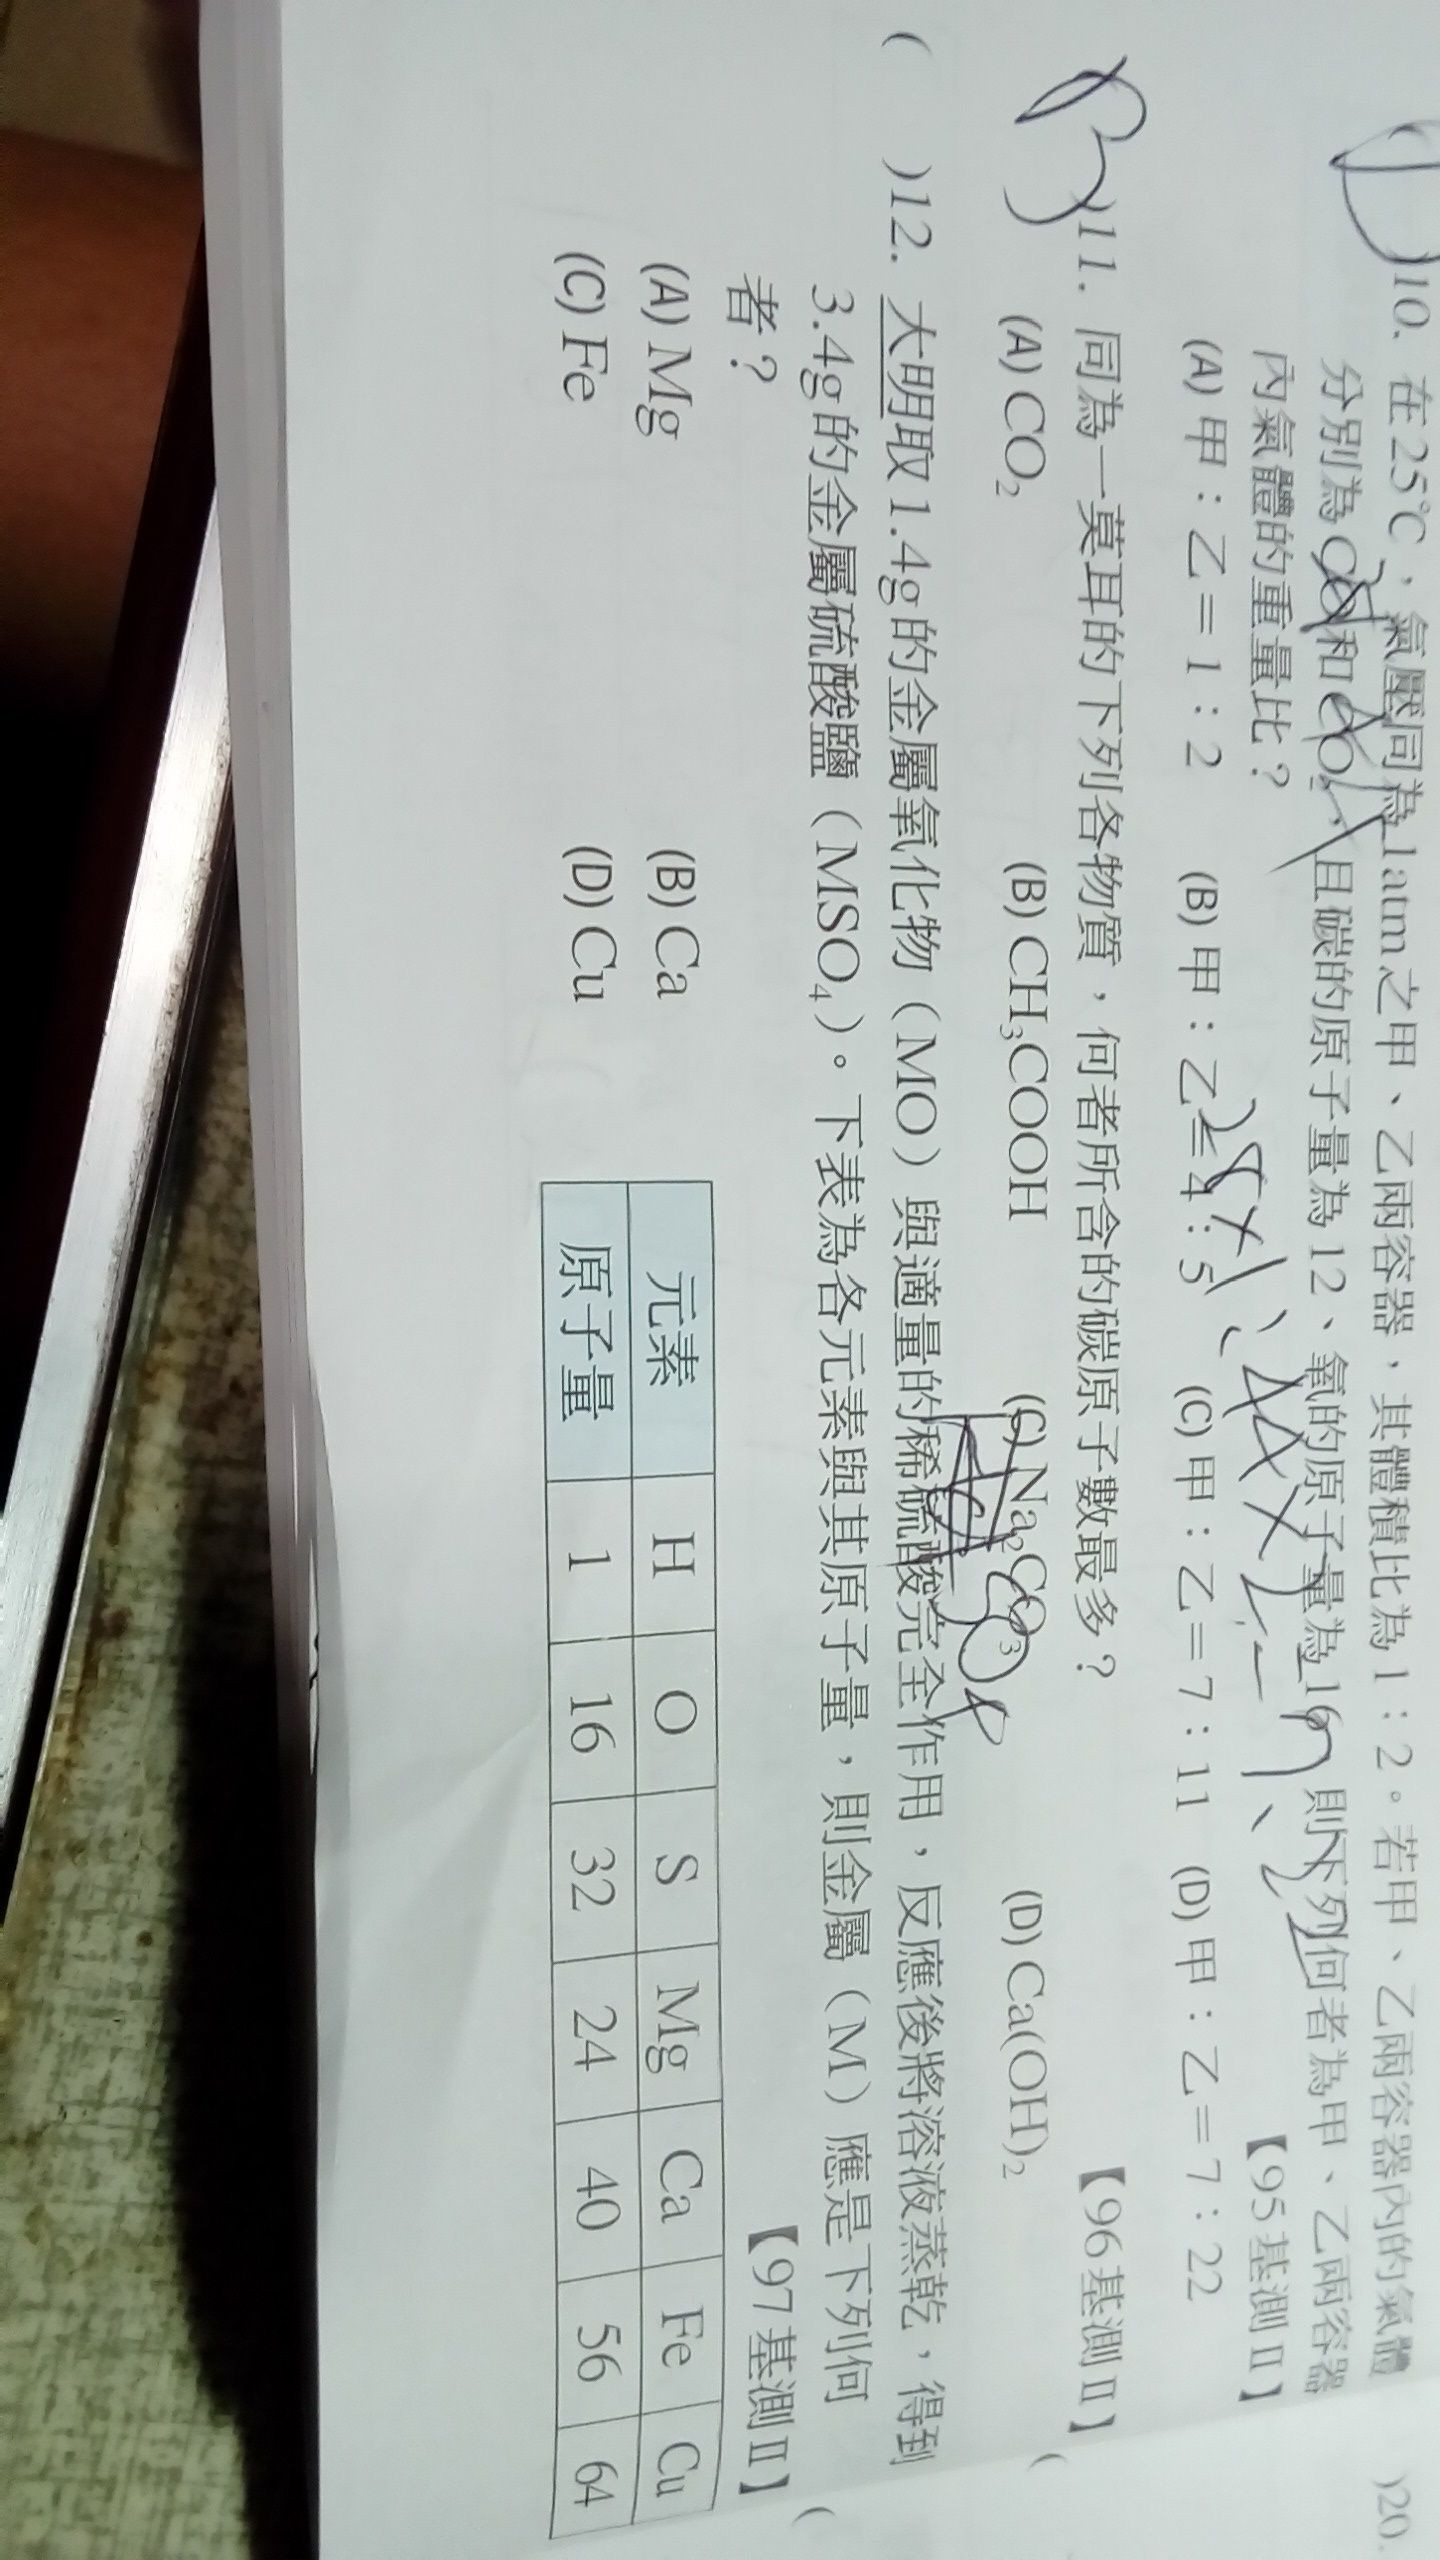 )10. 在25℃，氣壓同為1atm之甲、乙兩容器，其體積比為1：2。若甲、乙兩容器內的氣體
分別為CO和CO₂，且碳的原子量為12、氧的原子量為16，則下列何者為甲、乙兩容器
內氣體的重量比？ 【95基測Ⅱ】
(A) 甲：乙＝1：2 (B) 甲：乙＝4：5 (C) 甲：乙＝7：11 (D) 甲：乙＝7：22
B )11. 同為一莫耳的下列各物質，何者所含的碳原子數最多？ 【96基測Ⅱ】
(A) CO₂ (B) CH₃COOH (C) Na₂CO₃ (D) Ca(OH)₂
( )12. 大明取1.4g的金屬氧化物（MO）與適量的稀硫酸完全作用，反應後將溶液蒸乾，得到
3.4g的金屬硫酸鹽（MSO₄）。下表為各元素與其原子量，則金屬（M）應是下列何
者？ 【97基測Ⅱ】
(A) Mg (B) Ca
(C) Fe (D) Cu
元素 H O S Mg Ca Fe Cu
原子量 1 16 32 24 40 56 64
)20.
(
(